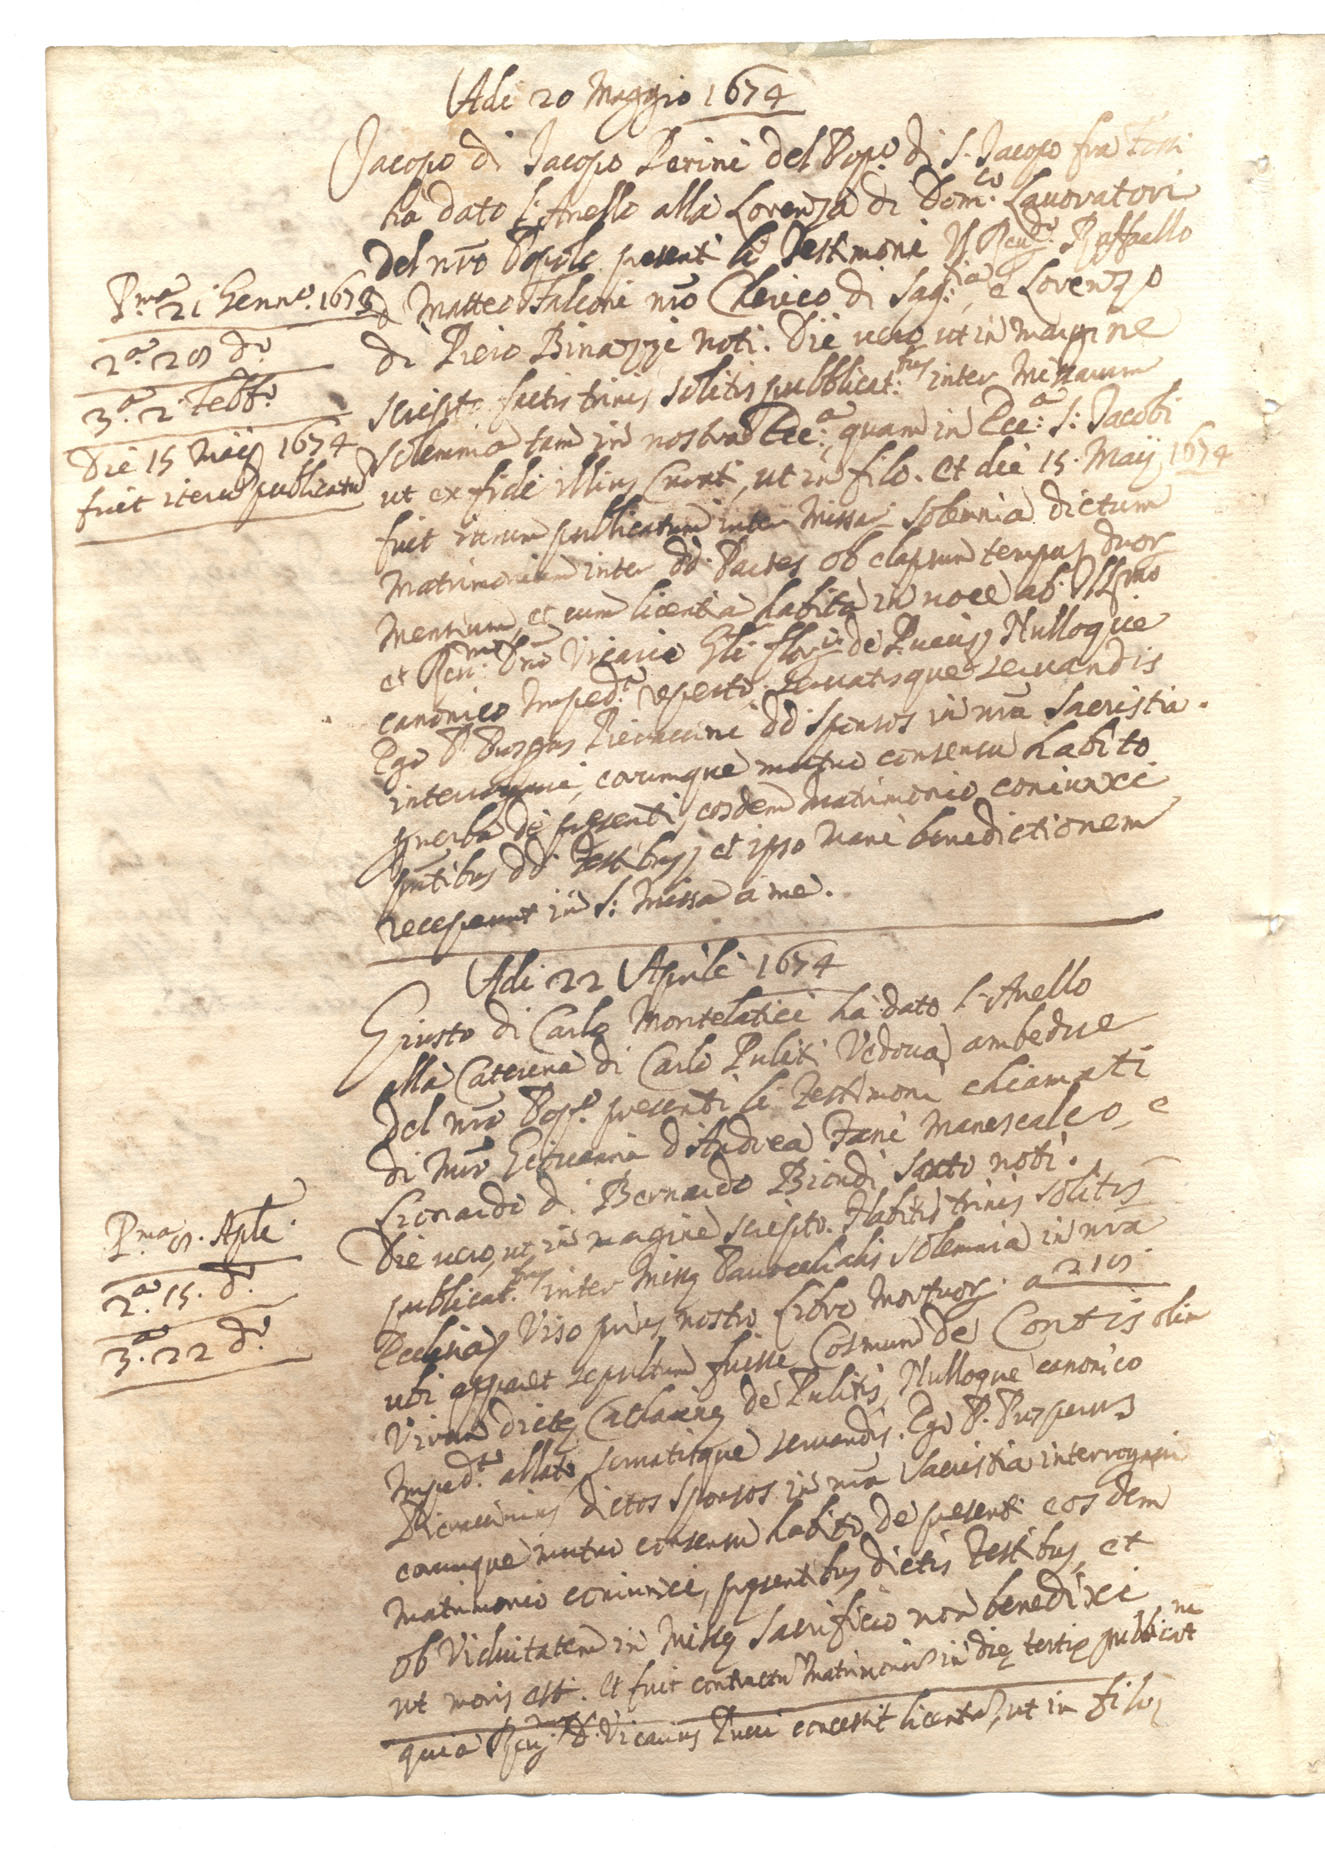 Adi 20 Maggio 1674
Jacopo di Jacopo Perini del Pop.o di S. Jacopo fra Fossi
ha dato l'Anello alla Lorenza di Dom.co Lavoratori
del nro Popolo presenti li Testimoni Rev.do Raffaello
Matteo Falconi nro Cherico di Sag.ia, e Lorenzo
di Piero Binazzi noti. Die vero, ut in margine
scripto factis trinis solitis pubblicat.bus inter Missarum
solemnia tam in nostra Ecc.a quam in Ecc.a S: Jacobi
ut ex fide illius Curati, ut in filo. et die 15. Maij 1674
fuit iterum publicatum inter Missar. solemnia dictum
Matrimonium inter dd. Partes ob elapsum tempus duor
Mensium, et cum licentia habita in voce ab Ill.mo
et Rev.mo Dno Vicario Gli flor. de Puccis, Nulloque
canonico Imped.to reperto servatisque servandis
Ego P. Pieraccini dd Sponsos in nra Sacristia
interrogavi, eorumque mutuo consensu habito
p verba de presenti, eosdem Matrimonio coniunxi
pntibus dd Testibus, et ipso mane benedictionem
receperunt in S: Missa a me.
Pma 21 Genn.o 1673
2.a 28 d.o
3.a 2 Febb.o
Die 15 Maij 1674
fuit iteru publicatu
Adi 22 Aprile 1674
Giusto di Carlo Montelatici ha dato l'Anello
alla Caterina di Carlo Puliti Vedova, ambedue
del nro Pop.o presenti li Testimoni chiamati
di Mro Giovanni d'Andrea Fani Manescalco, e
Lionardo di Bernardo Biondi Sarto noti.
Die vero, ut in margine scripto. Habitis trinis solitis
publicat.bus inter Missę Parrochialis solemnia in nra
Ecclesia, Viso prius nostro Libro Mortuor. a 218.
ubi apparet sepultum fuisse Cosmum de Contis olim
Virum dictę Catharinę de Pulitis, Nulloque canonico
Imped.to allato servatisque servandis. Ego P. Prosperus
Pieraccinius dictos Sponsos in nra Sacristia interrogavi
eorumque mutuo consensu habito de presenti eosdem
Matrimonio coniunxi, presentibus dictis Testibus, et
ob Viduitatem in Missę Sacrificio non benedixi
ut moris est. et fuit contractu Matrimoniu in die tertię publicat.ne
quia Rev. D. Vicarius Pucci concessit licentia, ut in filo
Pma 8. Aple.
2.a 15. d.o
3.a 22 d.o